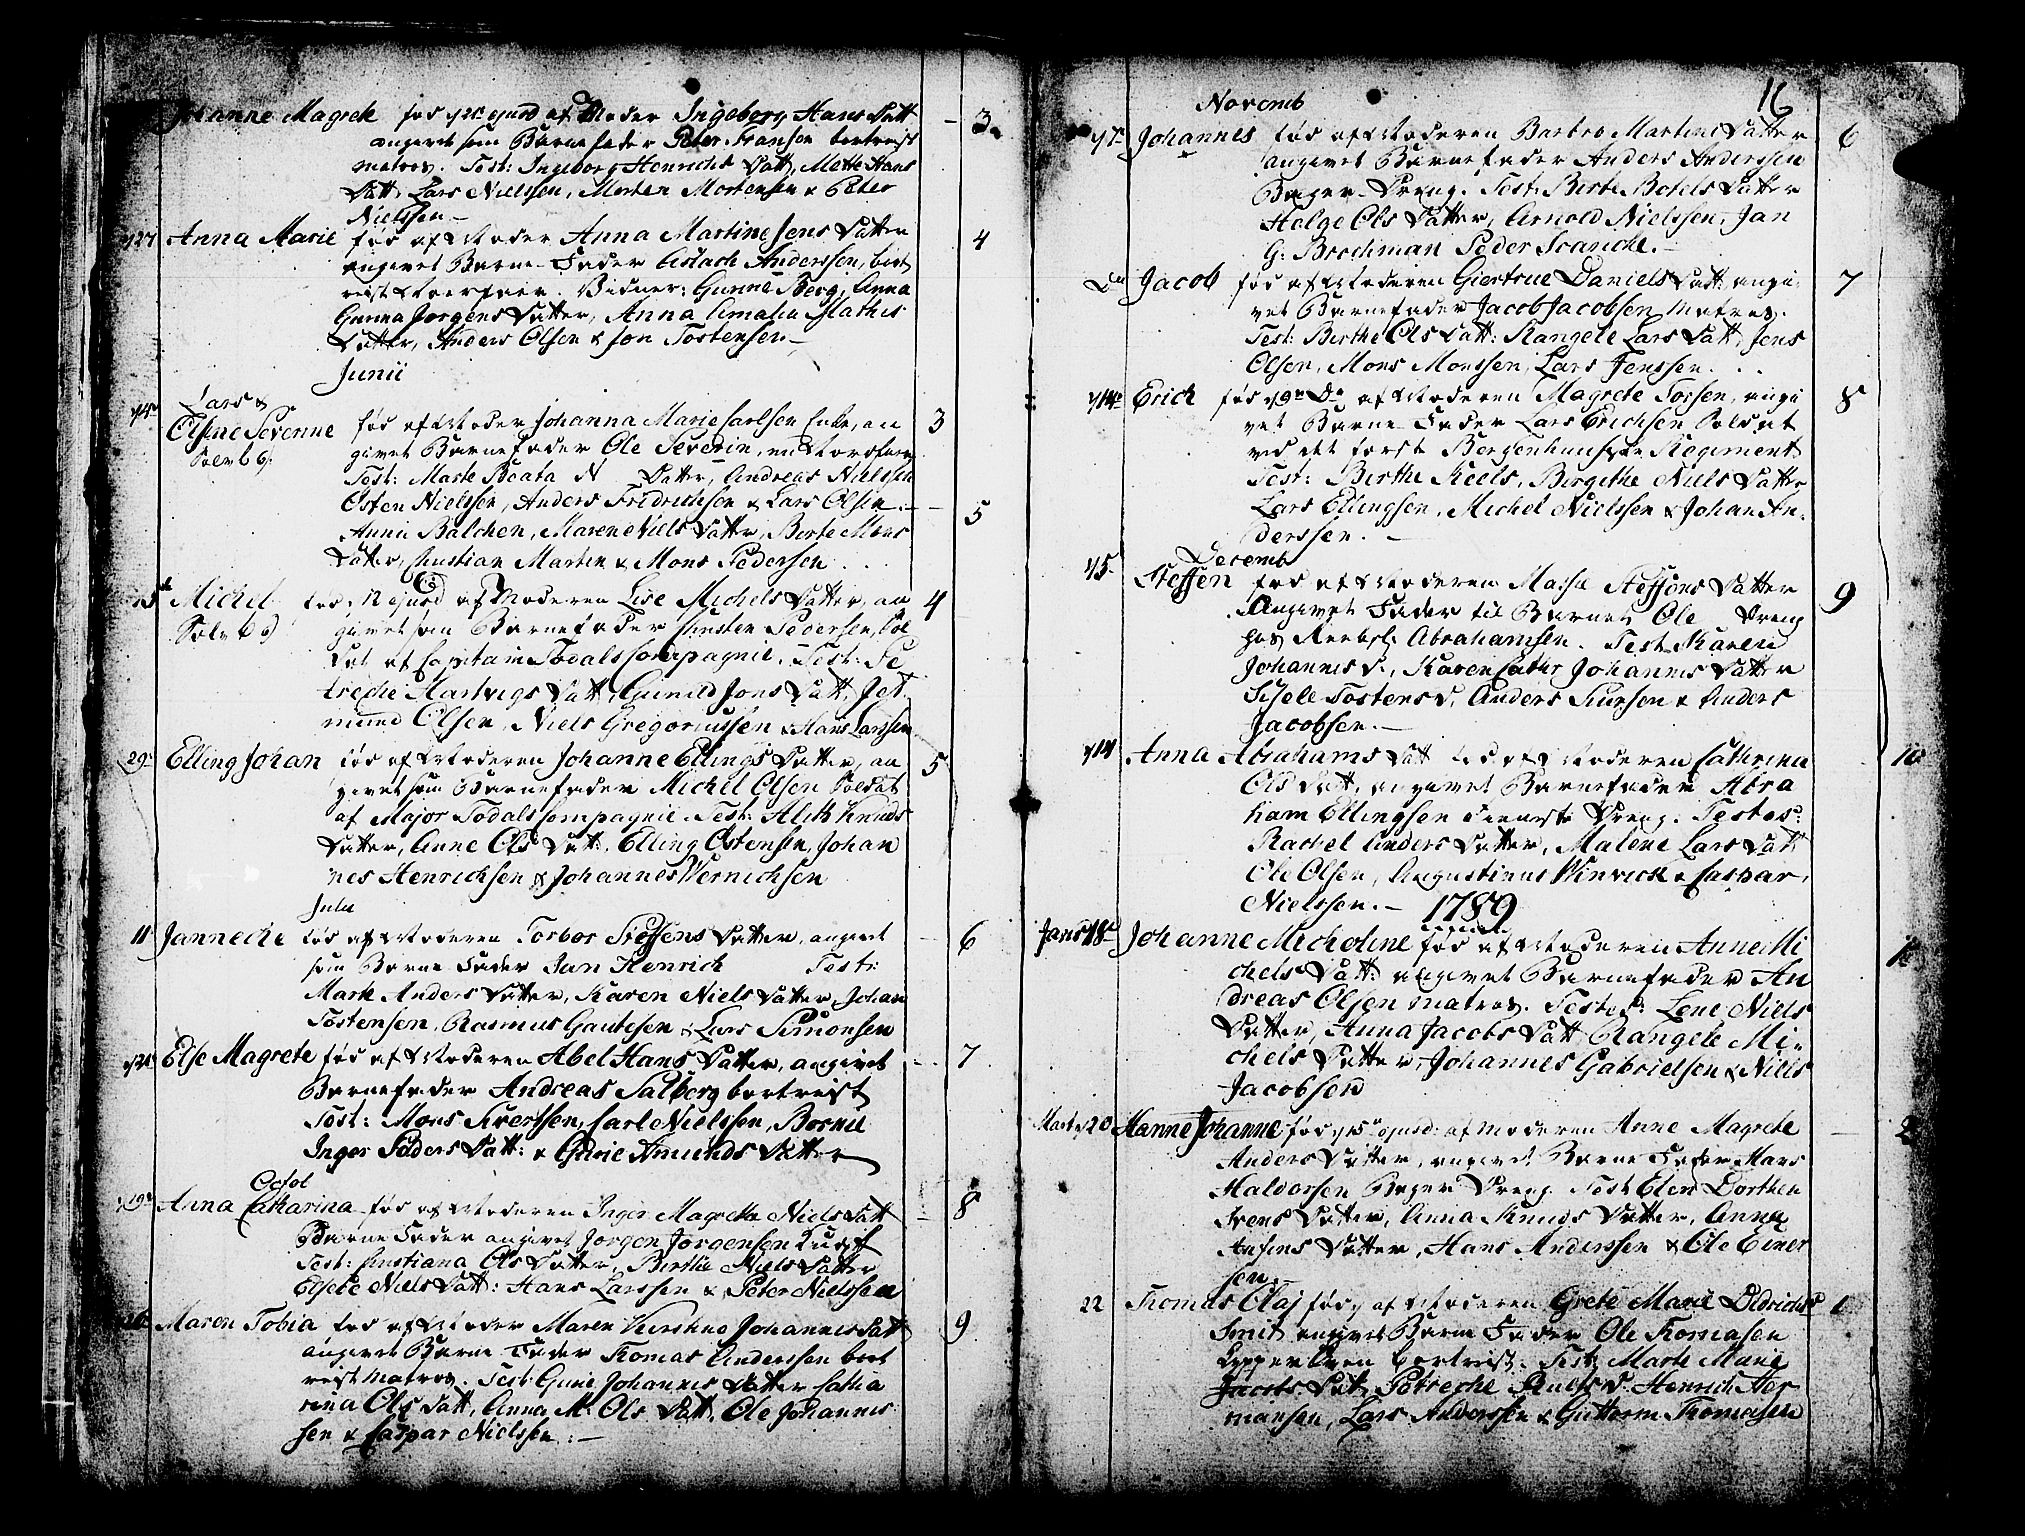 Johanne Magrete fød af Moder Ingeborg Hans Datt
angivet som Barnefader Peter Franson bortreist
matros. Test: Ingeborg Henrichs Datt, Mette Hans
Datt, Lars Nielssen, Morten Mortensen & Peter
Nielssen.-
3.
Anna Marie fød af Moder Anna Martine Jens Datter
angivet Barne-Fader Aslach Anderssen, bort
reist Giunne Berg, Anna
Gunna Jørgens Datter, Anna Amalia Mathis
Datter, Anders Olsen & Jon Tostensen.-
4
Junii
Lars &
Olsine Severine fød af Moder Johanna Marie Carlsen Enke, an
givet Barnefader Ole Severin, en
Test: Marte Beata N Datter, Andreas Nielssen
Østen Nielssen, Anders Fridrichsen & Lars Olsen.-
Anne Balchen, Maren Niels Datter, Berte Mons
Datter, Christian Martin & Mons Pedersen
3
5
Michel fød af Moderen Lise Michels Datter, an
givet som Barnefader Christen Pedersen, Sol
dat af Capitain Todals Compagnie. Test: Pe
treche Hartvigs Datt, Gunild Jons Datt, Jet
mund Olsen, Niels Gregoriussen & Hans Larssen
4
29. Elling Johan fød af Moderen Johanne Ellings Datter, an
givet som Barnefader Michel Olsen Soldat
af Major Todals Compagnie. Test: Aleth Knuds
Datter, Anne Ols Datt. Elling Østensen, Johan
nes Henrichsen & Johannes Wernichsen
5
Julii
11 Janneche fød af Moderen Torbor Steffens Datter, angivet
som Barne Fader Jan Henrich Test:
Marte Anders Datter, Karen Niels Datter, Johan
Tostensen, Rasmus Gautesen & Lars Simonsen
6
Else Magrete fød af Moderen Abel Hans Datter, angivet
Barnefader Andreas Salberg bortreist
Test: Mons Siverssen, Carl Nielssen,
Inger Peders Datt: & Gurie Amunds Datter
7
Octob
19 Anna Catharina fød af Moderen Inger Magrete Niels Datt
Barne Fader angivet Jørgen Jørgensen
Test: Christiana Ols Datter, Berthe Niels Datter
Elsebe Niels Datt: Hans Larssen & Peter Nielssen
8
Maren Tobia fød af Moder Maren Kirstine Johannes Datt
angivet Barne Fader Thomas Anderssen bort
reist Matros. Test: Gurie Johannes Datter Catha
rina Ols Datt, Anna M. Ols Datt, Ole Johannes
sen & Caspar Nielssen.-
9
16
Novemb
Johannes fød af Moderen Barbro Martins Datter
angivet Barnefader Anders Anderssen
Bager-Dreng. Test: Berte Botels Datter
Helge Ols Datter, Arnold Nielssen, Jan
G: Brochman Peder Scanche.-
6
Do Jacob fød af Moderen Giertrue Daniels Datt: angi
vet Barnefader Jacob Jacobsen Matros.
Test: Birthe Ols Datt: Rangele Lars Datt, Jens
Olsen, Mons Monssen, Lars Jenssen.
7
14 Erich fød 9de Do af Moderen Magrete Torsen, angi
vet Barne-Fader Lars Erichsen Soldat
ved det første Bergenhuuske Regiment
Test: Birthe Keels, Birgithe Niels Datter
Lars Ellingsen, Michel Nielssen & Johan An-
derssen.-
8
Decemb
Steffen fød af Moderen Massa Steffens Datter
Angivet Fader til Barnet Ole Dreng
hos Abrahamsen. Test: Karen
Johannes D., Karen Cathr Johannes Datter
Sissele Tostens D, Anders Siursen & Anders
Jacobsen.-
9
14 Anna Abrahams Datt fød af Moderen Cathrina
Ols Datt, angivet Barnefader Abra
ham Ellingsen tieneste Dreng. Testes:
Rachel Anders Datter, Malene Lars Datt
Ole Olsen, Augustinus Winrick & Caspar
Nielssen.-
10
1789
Janr Johanne Micheline fød af Moderen Anne Mi
chels Datt: angivet Barnefader An
dreas Olsen Matros. Testes: Lene Niels
Datter, Anna Jacobs Datt Rangele Mi-
chels Datter, Johannes Gabrielsen & Niels
Jacobsen
1
Marty 20 Hanne Johanne fød af Moderen Anne Magrete
Anders Datter, angivet Barne Fader Hans
Haldorsen Bager Dreng. Test Elen Dorthea
Ivers Datter, Anna Knuds Datter, Anna
Ansens Datter, Hans Anderssen & Ole Einer
sen.-
2
22 Thomas Olai fød af Moderen Grete Marie Didrichs
Smit angivet Barne Fader Ole Thomasen
bortreist. Test: Marte Marie
Jacobs Datt, Petreche Pauls D. Henrich Her
mansen, Lars Anderssen & Guttorm Thomasen
1